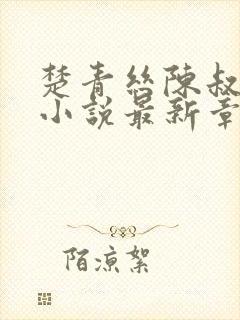 楚青絲陳叔
小說最新章
陌涼絮